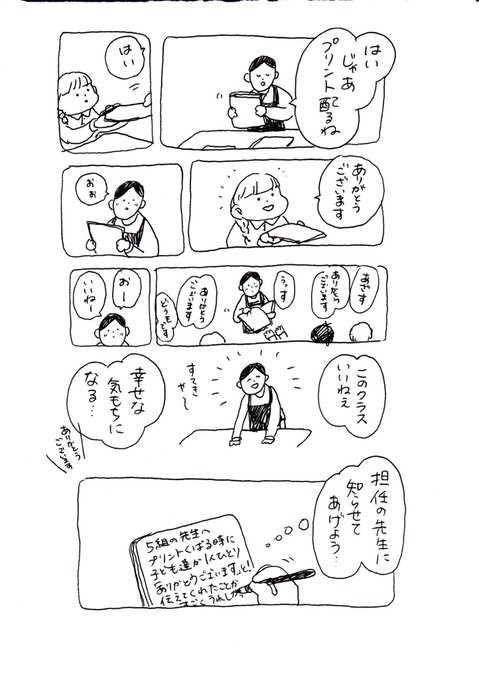 はい
じゃあ
プリント配るね
はい
ありがとう
ございます
おぉ
あざす
ありがとう
ございます
うっす
ありがとう
ございます
どうもです
おー
いいねー
このクラス
いいねぇ
すてき
やー
幸せな
気もちに
なる…
ありがとう
ございます
担任の先生に
知らせて
あげよう…
5組の先生へ
プリントくばる時に
子ども達が1人ひとり
ありがとうございますと!
伝えてくれたことが
すごくうれしか